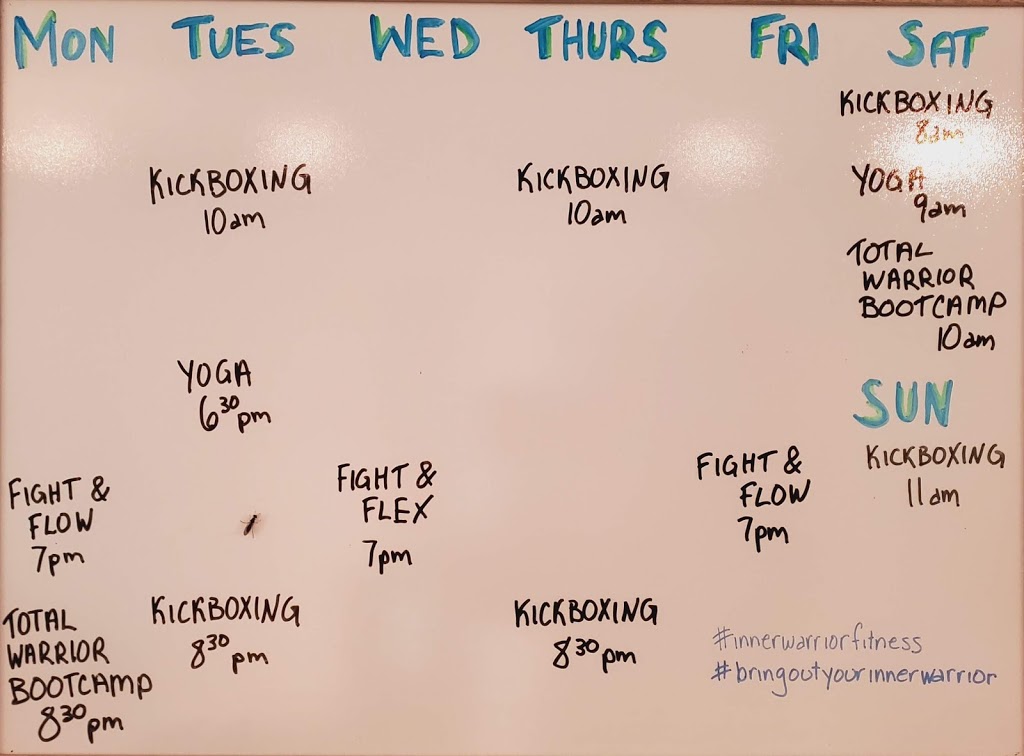 MON TUES WED THURS FRI SAT
KICKBOXING
8am
KICKBOXING
10am
KICKBOXING
10am
YOGA
9am
TOTAL
WARRIOR
BOOTCAMP
10am
YOGA
630 pm
SUN
KICKBOXING
11am
FIGHT &
FLOW
7pm
FIGHT &
FLEX
7pm
FIGHT &
FLOW
7pm
TOTAL
WARRIOR
BOOTCAMP
830 pm
KICKBOXING
830 pm
KICKBOXING
830 pm
#innerwarriorfitness
#bringoutyourinnerwarrior